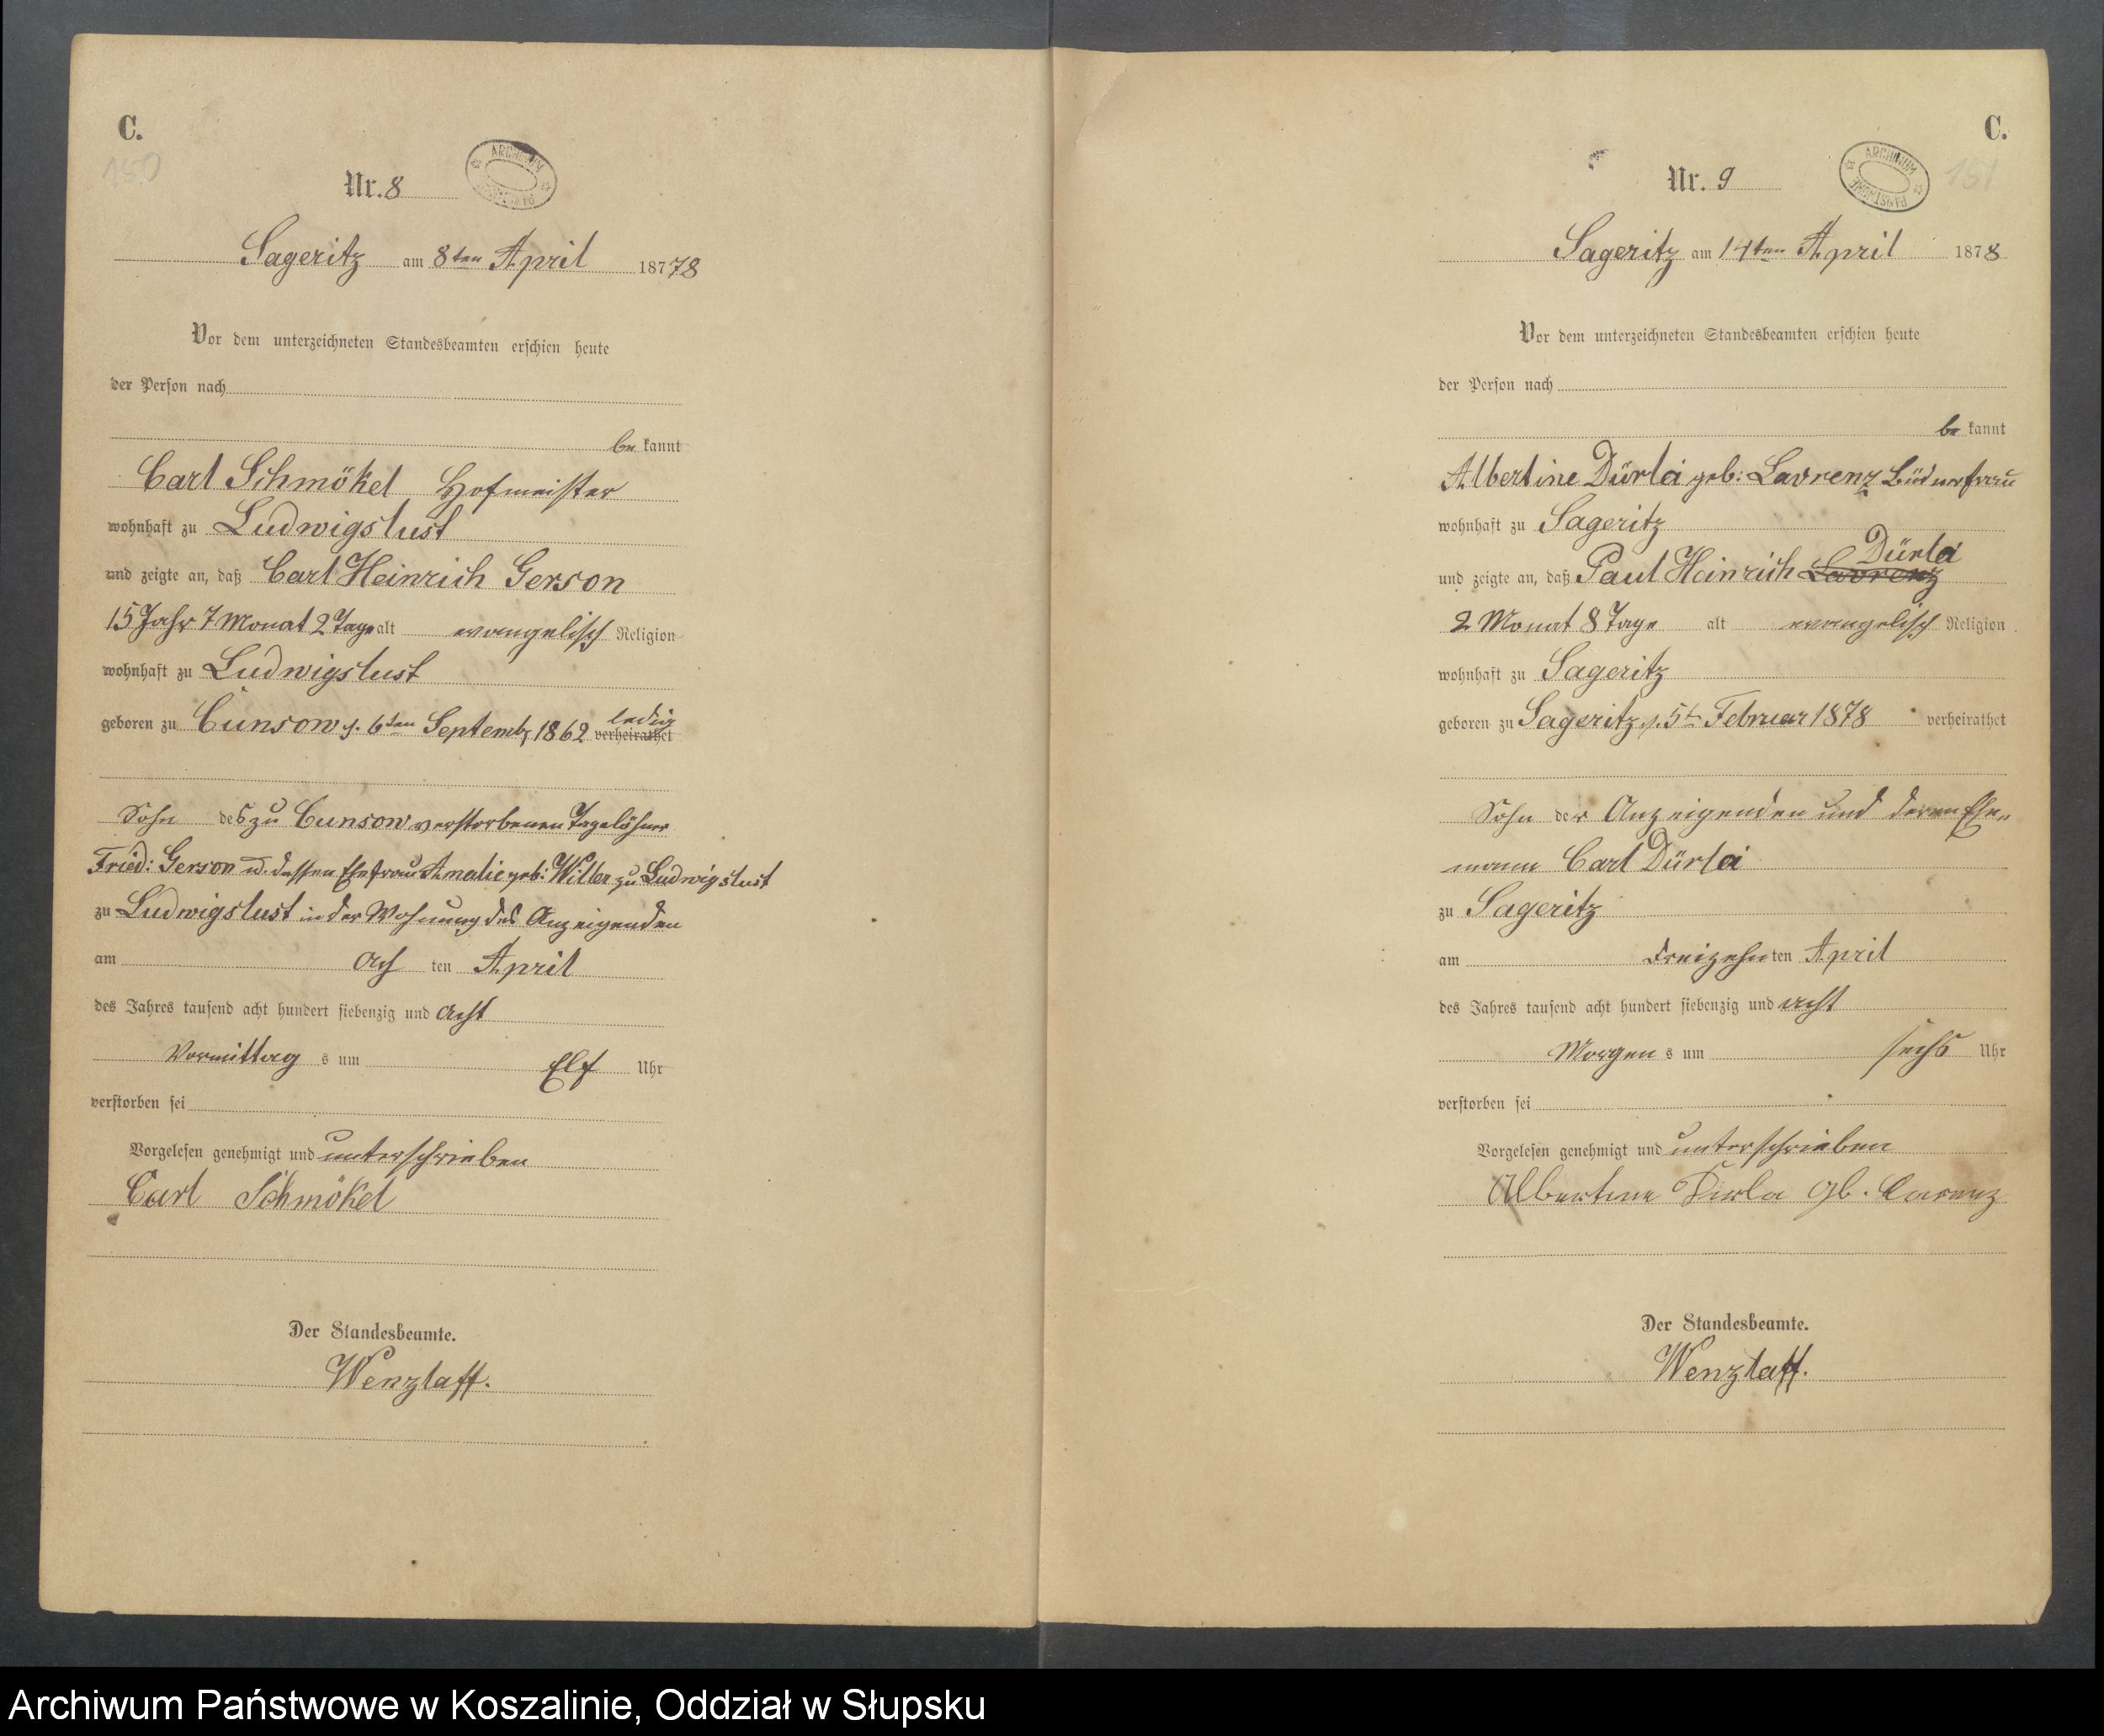 C.
150
Nr. 8
ARCHIWUM PAŃSTWOWE
Sageritz am 8ten April 18778
Vor dem unterzeichneten Standesbeamten erschien heute
der Person nach
be kannt
Carl Schmökel Hofmeister
wohnhaft zu Ludwigslust
und zeigte an, daß Carl Heinrich Gerson
15 Jahr 7 Monat 2 Tage alt evangelisch Religion
wohnhaft zu Ludwigslust
ledig
geboren zu Cunsow d. 6ten Septembr 1862 verheirathet
Sohn des zu Cunsow verstorbenen Tagelöhner
Fried: Gerson u. dessen Ehefrau Amalie geb: Witter zu Ludwigslust
zu Ludwigslust in der Wohnung des Anzeigenden
am ach ten April
des Jahres tausend acht hundert siebenzig und acht
Vormittag s um Elf Uhr
verstorben sei
Vorgelesen genehmigt und unterschrieben
Carl Schmökel
Der Standesbeamte.
Wenzlaff.
C.
151
Nr. 9
ARCHIWUM PAŃSTWOWE
Sageritz am 14ten April 1878
Vor dem unterzeichneten Standesbeamten erschien heute
der Person nach
be kannt
Albertine Dürla geb: Lavrenz Büdnerfrau
wohnhaft zu Sageritz
Dürla
und zeigte an, daß Paul Heinrich Lavrenz
2 Monat 8 Tage alt evangelisch Religion
wohnhaft zu Sageritz
geboren zu Sageritz d. 5t Februar 1878 verheirathet
Sohn der Anzeigenden und deren Ehe„
mann Carl Dürla
zu Sageritz
am dreizehn ten April
des Jahres tausend acht hundert siebenzig und acht
Morgen s um sechs Uhr
verstorben sei
Vorgelesen genehmigt und unterschrieben
Albertine Dirla gb. Larenz
Der Standesbeamte.
Wenzlaff.
Archiwum Państwowe w Koszalinie, Oddział w Słupsku